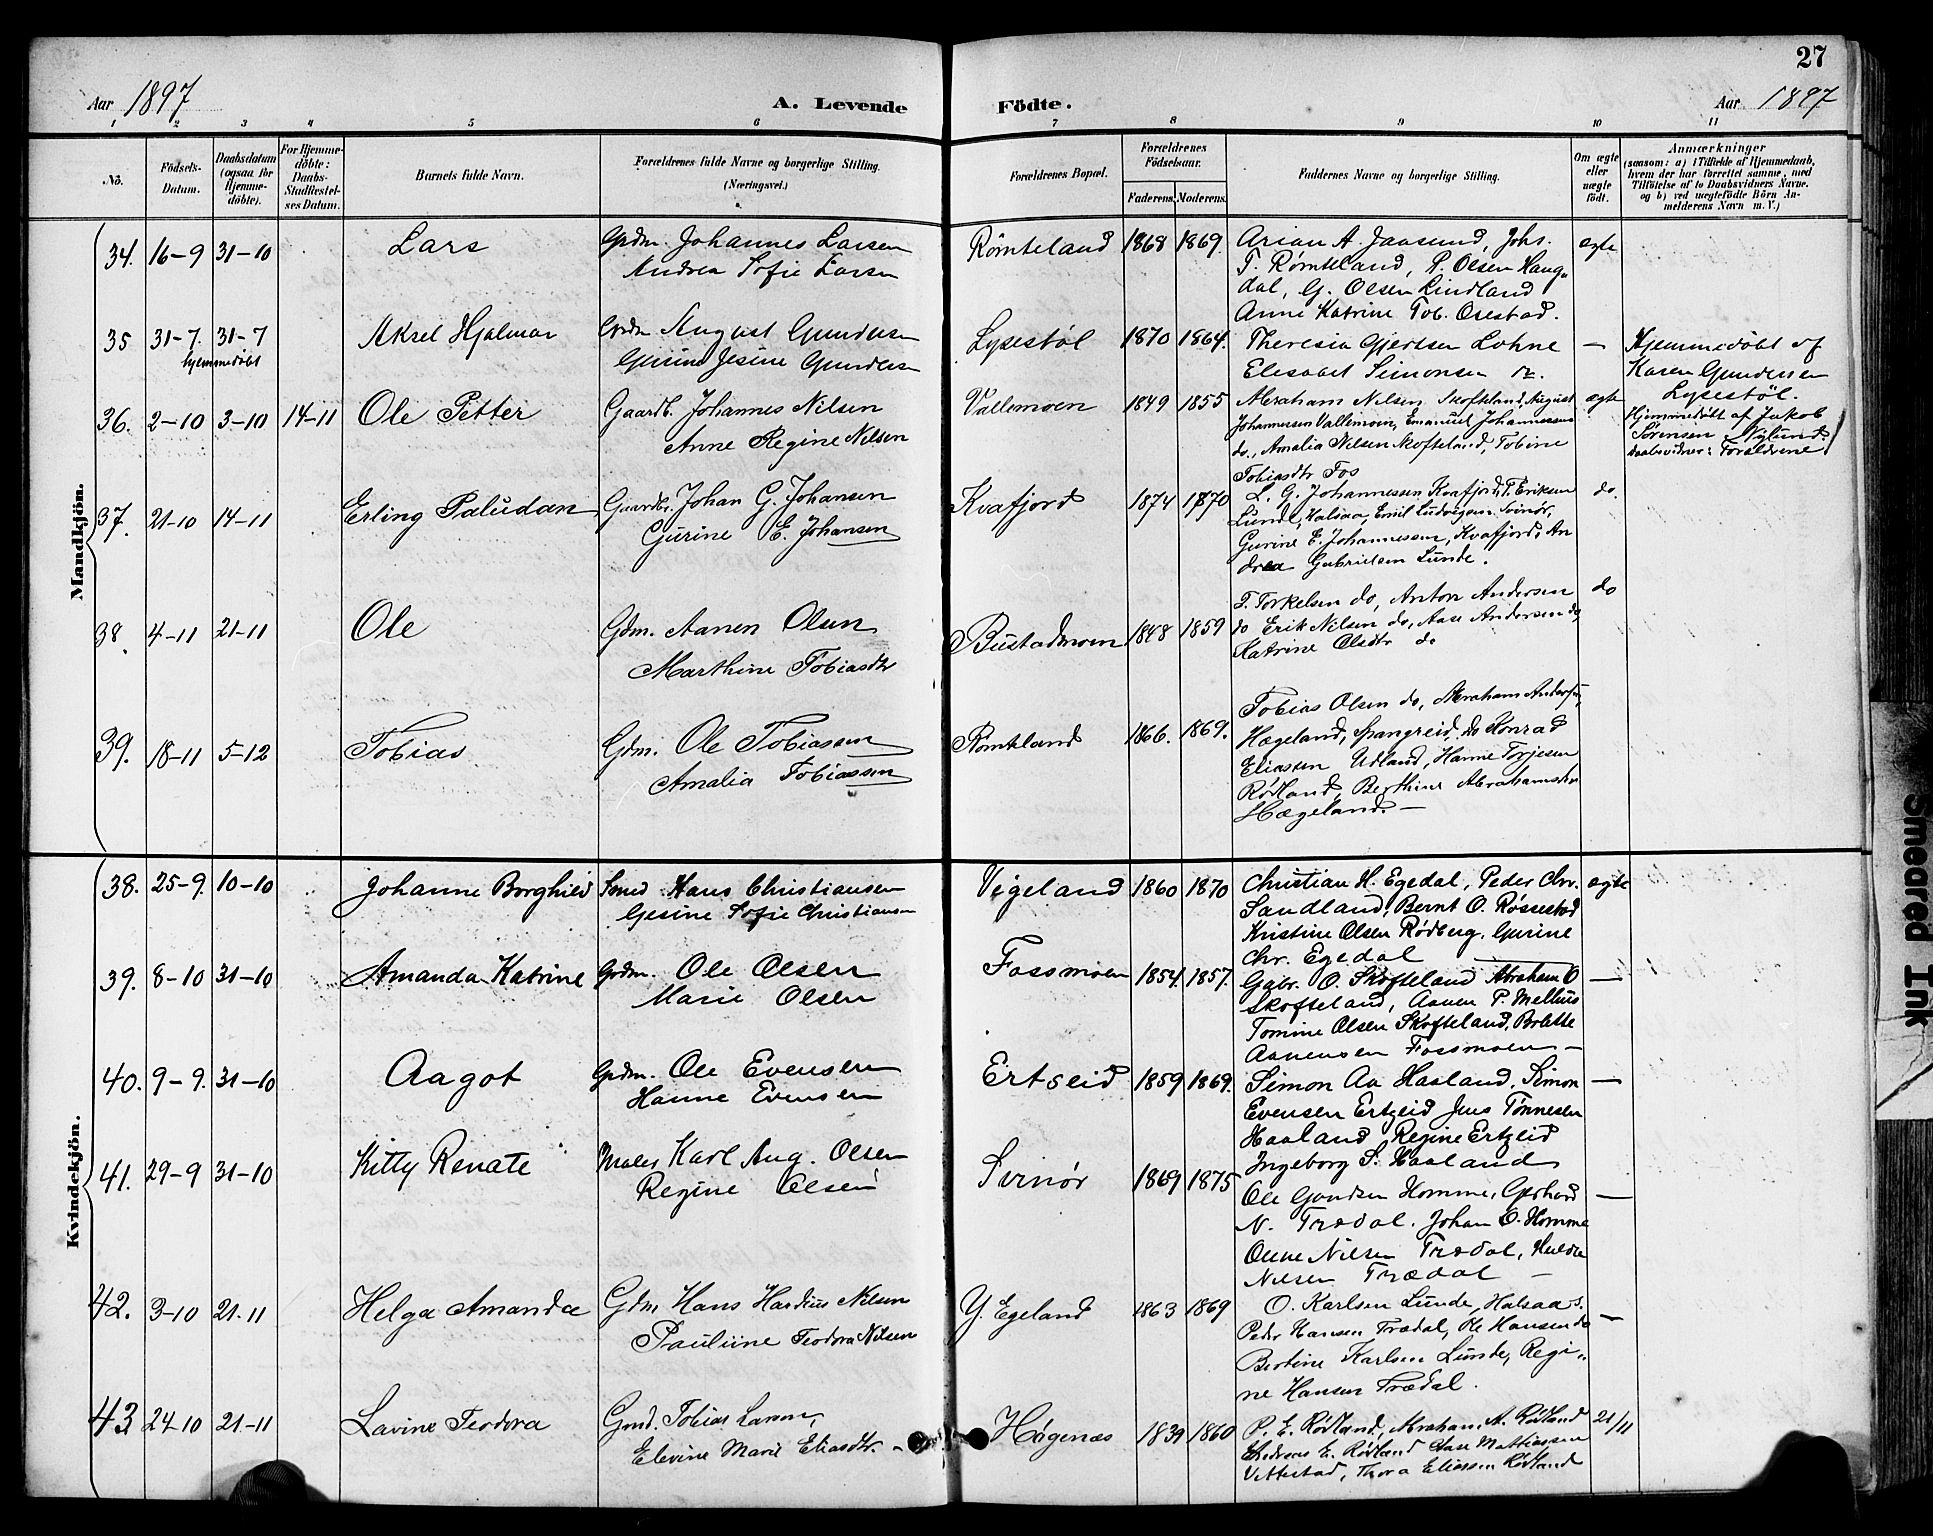 27
Aar 1897
A. Levende Födte.
Aar 1897
1 2 3 4 5 6 7 8 9 10 11
No.
Födsels-Datum.
Daabsdatum (ogsaa for Hjemme-döbte).
For Hjemme-döbte: Daabs-Stadfæstel-ses Datum.
Barnets fulde Navn.
Forældrenes fulde Navne og borgerlige Stilling. (Næringsvei.)
Forældrenes Bopæl.
Forældrenes Födselsaar.
Faderens. Moderens.
Faddernes Navne og borgerlige Stilling.
Om ægte eller uægte födt.
Anmærkninger
(saasom: a) i Tilfælde af Hjemmedaab, hvem der har forrettet samme, med Tilföielse af to Daabsvidners Navne. og b) ved uægtefödte Börn An-melderens Navn m. V.)
Mandkjön.
34. 16-9 31-10 Lars
Grdm. Johannes Larsen
Andrea Sofie Larsen
Rømteland 1868 1869.
Arian A. Jaasund, Johs.
T. Rømteland, P. Olsen Haug-
dal, G. Olsen Lindland
Anne Katrine Tob. Osestad.
ægte
35 31-7. 31-7
hjemmedöbt
Aksel Hjalmar
Grdm August Gundersen
Gurine Jesine Gundersen
Lysestøl 1870 1864.
Theresia Gjertsen Lohne
Elesabet Simonsen
—
Hjemmedöbt af
Karen Gundersen
Lysestöl.
36. 2-10 3-10 14-11 Ole Petter
Gaardb. Johannes Nilsen
Anne Regine Nilsen
Vallemoen 1849 1855
Abraham Nilsen Skofteland, August
Johannessen Vallemoen, Emanuel Johannessen
do., Amalia Nilsen Skofteland, Tobine
Tobiasdtr Fos
ægte
Hjemmedöbt af Jakob
Sørensen Viglund
daabsvidner: Forældrene
37. 21-10 14-11 Erling Paludan
Gaardbr. Johan G. Johansen
Gurine E. Johansen
Kvafjord 1874 1870
L. G. Johannessen Kvafjord, T. Eriksen
Lunde, Halsaa, Emil Ludvigsen Svinør,
Gurine E. Johannessen, Kvafjord, An
drea Gabrielsen Lunde.
do.
38. 4-11 21-11 Ole
Gdm. Aanen Olsen
Marthine Tobiasdtr
Bustadmoen 1848 1859
T. Torkelsen do, Anton Andersen
do Erik Nilsen do, Aase Andersen do,
Katrine Olsdtr do
do
39. 18-11 5-12 Tobias
Gdm. Ole Tobiassen
Amalia Tobiassen
Rømteland 1866. 1869.
Tobias Olsen do, Abraham Andersen,
Hægeland, Spangreid, do Konrad
Eliassen Udland, Hanne Torjesen
Rödland, Berthine Abrahamsen
Hægeland. —
Kvindekjön.
38. 25-9. 10-10 Johanne Borghild
Smed Hans Christiansen
Gesine Sofie Christiansen
Vigeland 1860 1870
Christian H. Egedal, Peder Chr.
Sandland, Bernt O. Røssestad
Kristine Olsen Rødberg, Gurine
Chr. Egedal
ægte
39. 8-10 31-10 Amanda Katrine
Grdm. Ole Olsen
Marie Olsen
Fossmoen 1854. 1857.
Gabr. O. Skofteland Abraham O
Skofteland, Aanen P. Melhus
Tomine Olsen Skofteland, Bolette
Aanensen Fossmoen —
—
40. 9-9. 31-10 Aagot
Grdm. Ole Evensen
Hanne Evensen
Ertseid 1859 1869.
Simon Aa Haaland, Simon
Evensen Ertzeid Jens Tønnesen
Haaland Regine Ertzeid
Ingeborg S. Haaland
—
41. 29-9 31-10 Kitty Renate
Maler Karl Aug. Olsen
Regine Olsen
Svinør 1869 1875
Ole Gundsen Homme, Gerhard
N. Trædal. Johan O. Homme
Olene Nilsen Trædal, Hulda
Nilsen Trædal —
—
42. 3-10 21-11 Helga Amanda
Gdm Hans Hardius Nilsen
Pauline Teodora Nilsen
Y. Egeland 1863 1869
O. Karlsen Lunde, Halsaa s.
Peder Hansen Trædal, Ole Hansen do
Bertine Karlsen Lunde, Regi-
ne Hansen Trædal.
—
43 24-10 21-11 Lavine Teodora
Gmd. Tobias Larsen,
Elevine Marie Eliasdtr. -
Høgenæs 1839 1860
P. E. Rødland, Abraham A. Rödland
Andreas E. Rødland Aase Mattiassen
Vettestad, Thora Eliassen Rødland
21/11
Smeared Ink